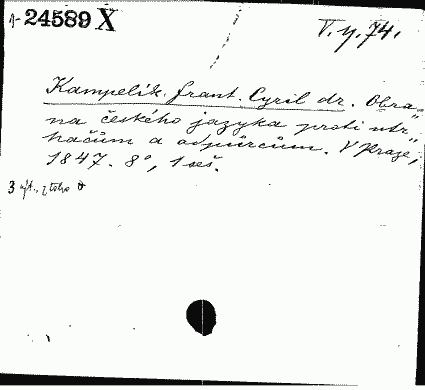 A- 24589 X
V. y. 74.
Kampelík, frant. Cyril dr. Obra„
na českého jazyka proti utr„
hačům a odpůrcům. V Praze,
1847. 8°, 1 seš.
3 z toho